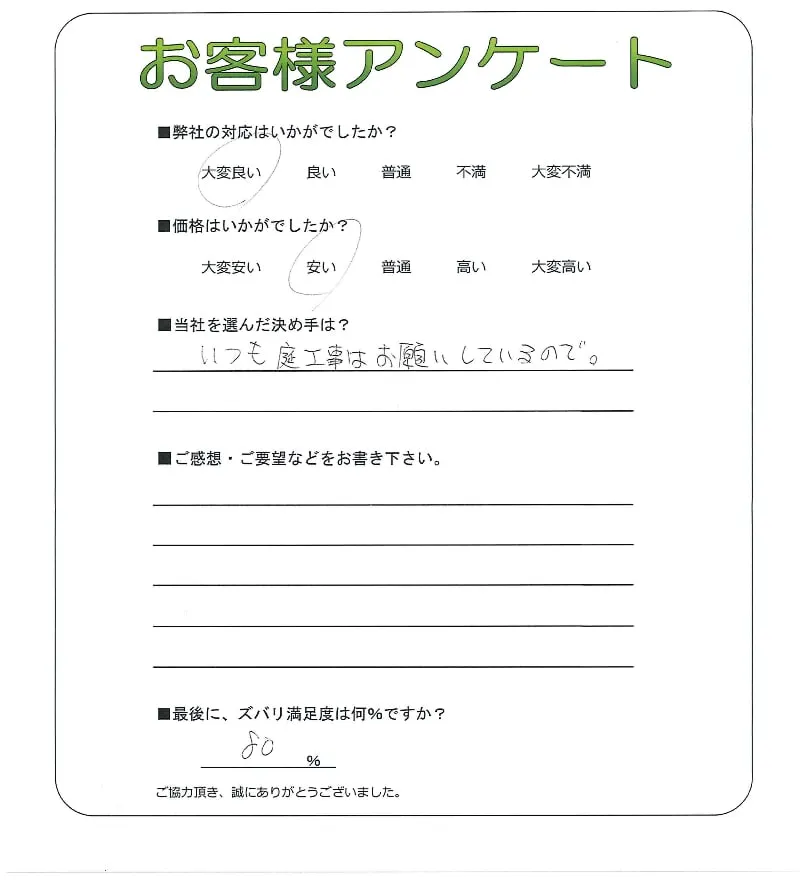 お客様アンケート
■弊社の対応はいかがでしたか？
大変良い 良い 普通 不満 大変不満
■価格はいかがでしたか？
大変安い 安い 普通 高い 大変高い
■当社を選んだ決め手は？
いつも庭工事はお願いしているので。
■ご感想・ご要望などをお書き下さい。
■最後に、ズバリ満足度は何%ですか？
80 %
ご協力頂き、誠にありがとうございました。